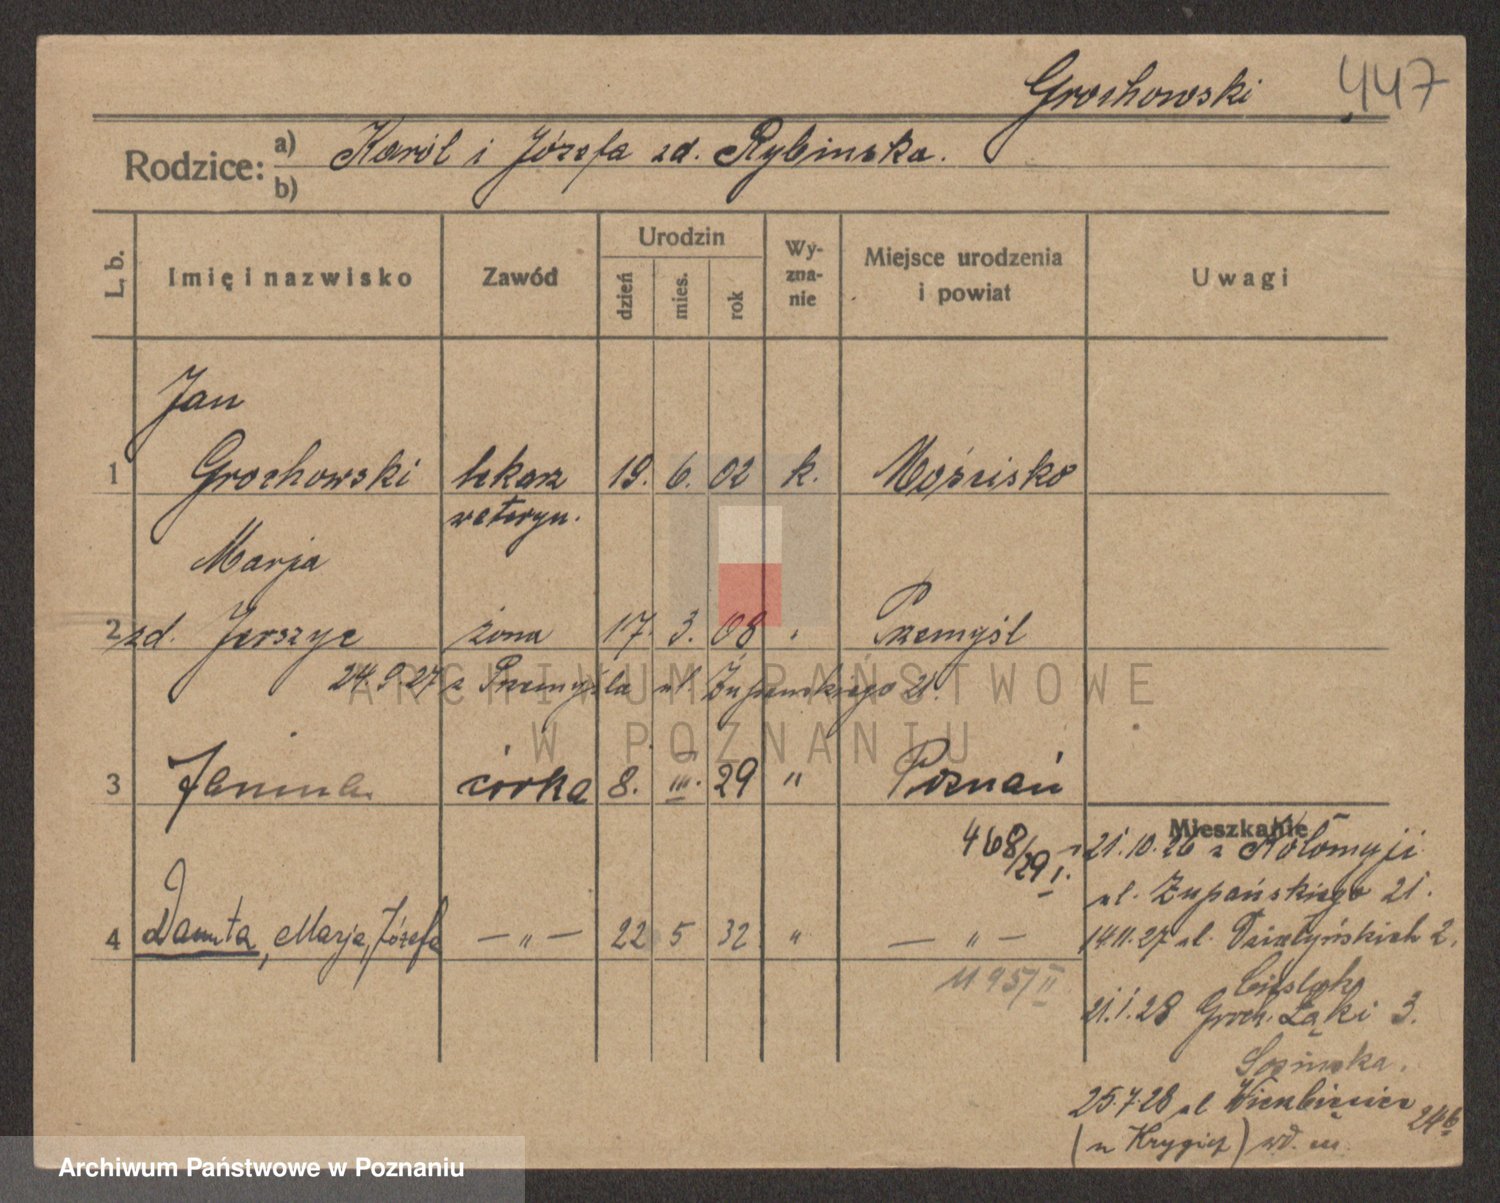 Grochowski 447
Rodzice: a) Karól i Józefa zd. Rybinska.
b)
L. b. Imię i nazwisko Zawód Urodzin dzień mies. rok Wy-zna-nie Miejsce urodzenia i powiat Uwagi
Jan
1 Grochowski lekarz 19. 6. 02 k. Mościska
weteryn.
Marja
2 zd. Jerszyc żona 17. 3. 08 " Przemyśl
24.9.27 z Przemyśla ul. Żupańskiego 21.
ARCHIWUM PAŃSTWOWE
W POZNANIU
3 Janina córka 8. III. 29 " Poznań
Mieszkanie
468/29 I. 21.10.26 z Kołomyji
ul. Żupańskiego 21.
4 Danuta, Marja, Józefa — " — 22 5 32 " — " —
14.11.27 ul. Działyńskich 2.
95/II
21.1.28 Groch. Łąki 3.
Sosinska.
25.7.28 ul Wierzbięcice 24b
(u Krygier)
Archiwum Państwowe w Poznaniu